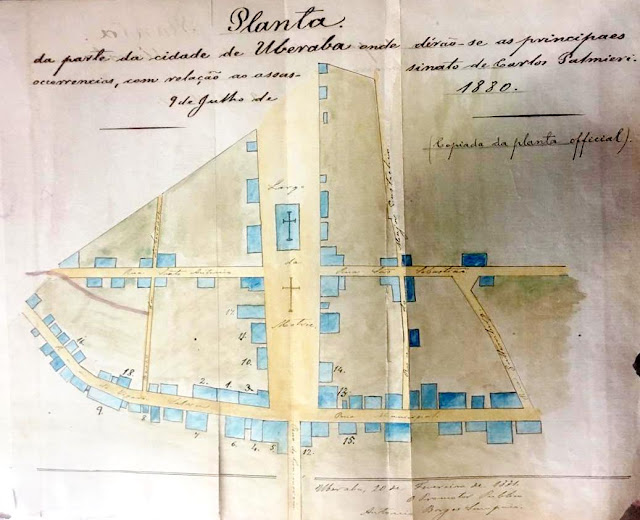 Planta.
da parte da cidade de Uberaba onde dérão-se as principaes
ocorrencias, com relação ao assas-
sinato de Carlos Palmieri.
9 de Julho de
1880.
(Copiada da planta official).
Largo
da
Matriz
Rua Santo Antonio
Rua São Sebastião
Rua Municipal
17.
11.
10.
14.
13.
16.
18.
2.
1.
3.
9.
8.
7
6.
4.
5.
12.
15.
Uberaba, 20 de Fevereiro de 1881
O Promotor Publico
Antonio Borges Sampaio